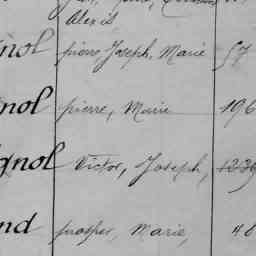 Alexis
nol pierre, Joseph, Marie 57
nol pierre, Marie 196
gnol Victor, Joseph, 1239
nd prosper, Marie, 46